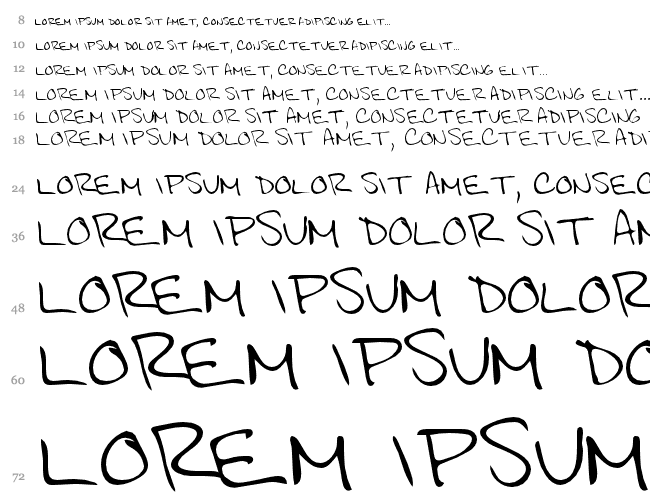 8 LOREM IPSUM DOLOR SIT AMET, CONSECTETUER ADIPISCING ELIT...
10 LOREM IPSUM DOLOR SIT AMET, CONSECTETUER ADIPISCING ELIT...
12 LOREM IPSUM DOLOR SIT AMET, CONSECTETUER ADIPISCING ELIT...
14 LOREM IPSUM DOLOR SIT AMET, CONSECTETUER ADIPISCING ELIT...
16 LOREM IPSUM DOLOR SIT AMET, CONSECTETUER ADIPISCING
18 LOREM IPSUM DOLOR SIT AMET, CONSECTETUER ADI
24 LOREM IPSUM DOLOR SIT AMET, CONSEC
36 LOREM IPSUM DOLOR SIT AM
48 LOREM IPSUM DOLOR
60 LOREM IPSUM DO
72 LOREM IPSUM